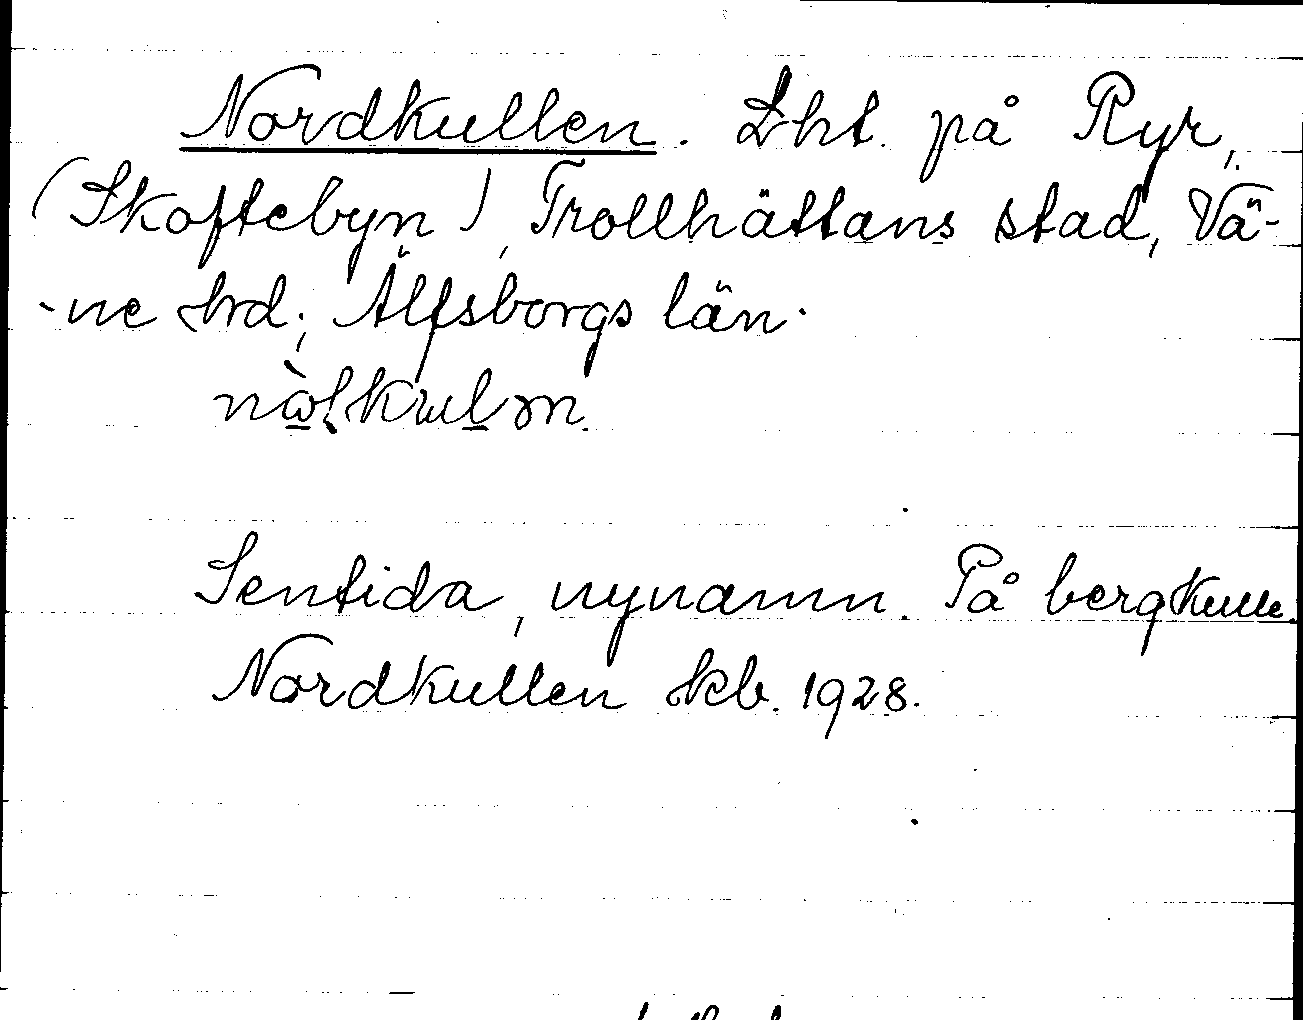 Nordkullen. Lht. på Ryr,
(Skoftebyn), Trollhättans stad, Vä-
-ne hrd; Älfsborgs län.
Sentida, nynamn. På bergkulle.
Nordkullen kb. 1928.